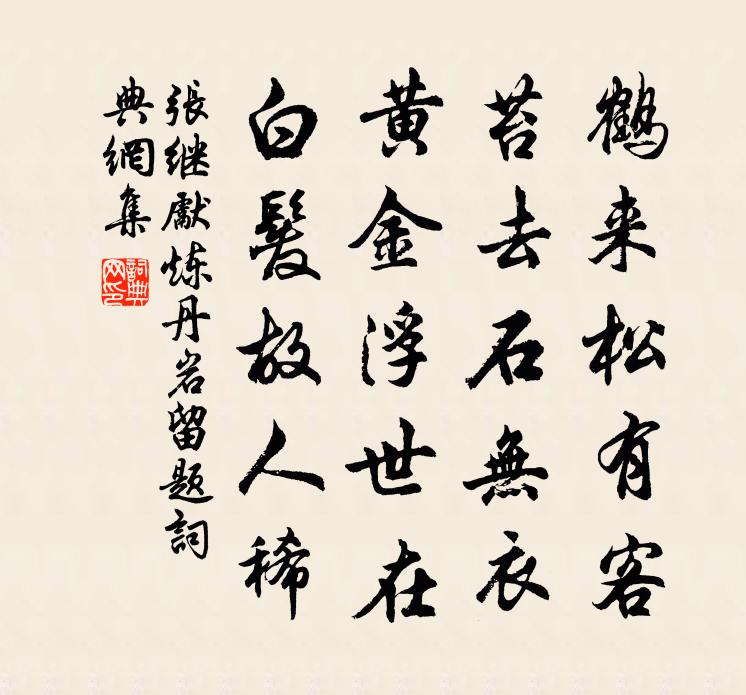 鶴来松有客
苔去石無衣
黄金浮世在
白髮故人稀
張继獻炼丹岩留题詞
典網集
詞典网印